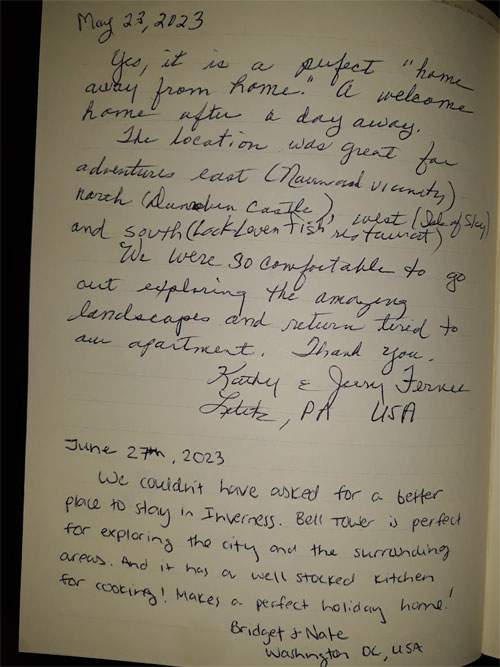 May 23, 2023
Yes, it is a perfect "home
away from home." A welcome
home after a day away.
The location was great for
adventures east (Nairn and vicinity)
north (Dunrobin Castle), west (Isle of Sky)
and south (Loch Leven Fish restaurant)
We were so comfortable to go
out exploring the amazing
landscapes and return tired to
our apartment. Thank you.
Kathy & Jerry
Lititz, PA USA
June 27th, 2023
We couldn't have asked for a better
place to stay in Inverness. Bell Tower is perfect
for exploring the city and the surrounding
areas. And it has a well stocked kitchen
for cooking! Makes a perfect holiday home!
Bridget & Nate
Washington DC, USA